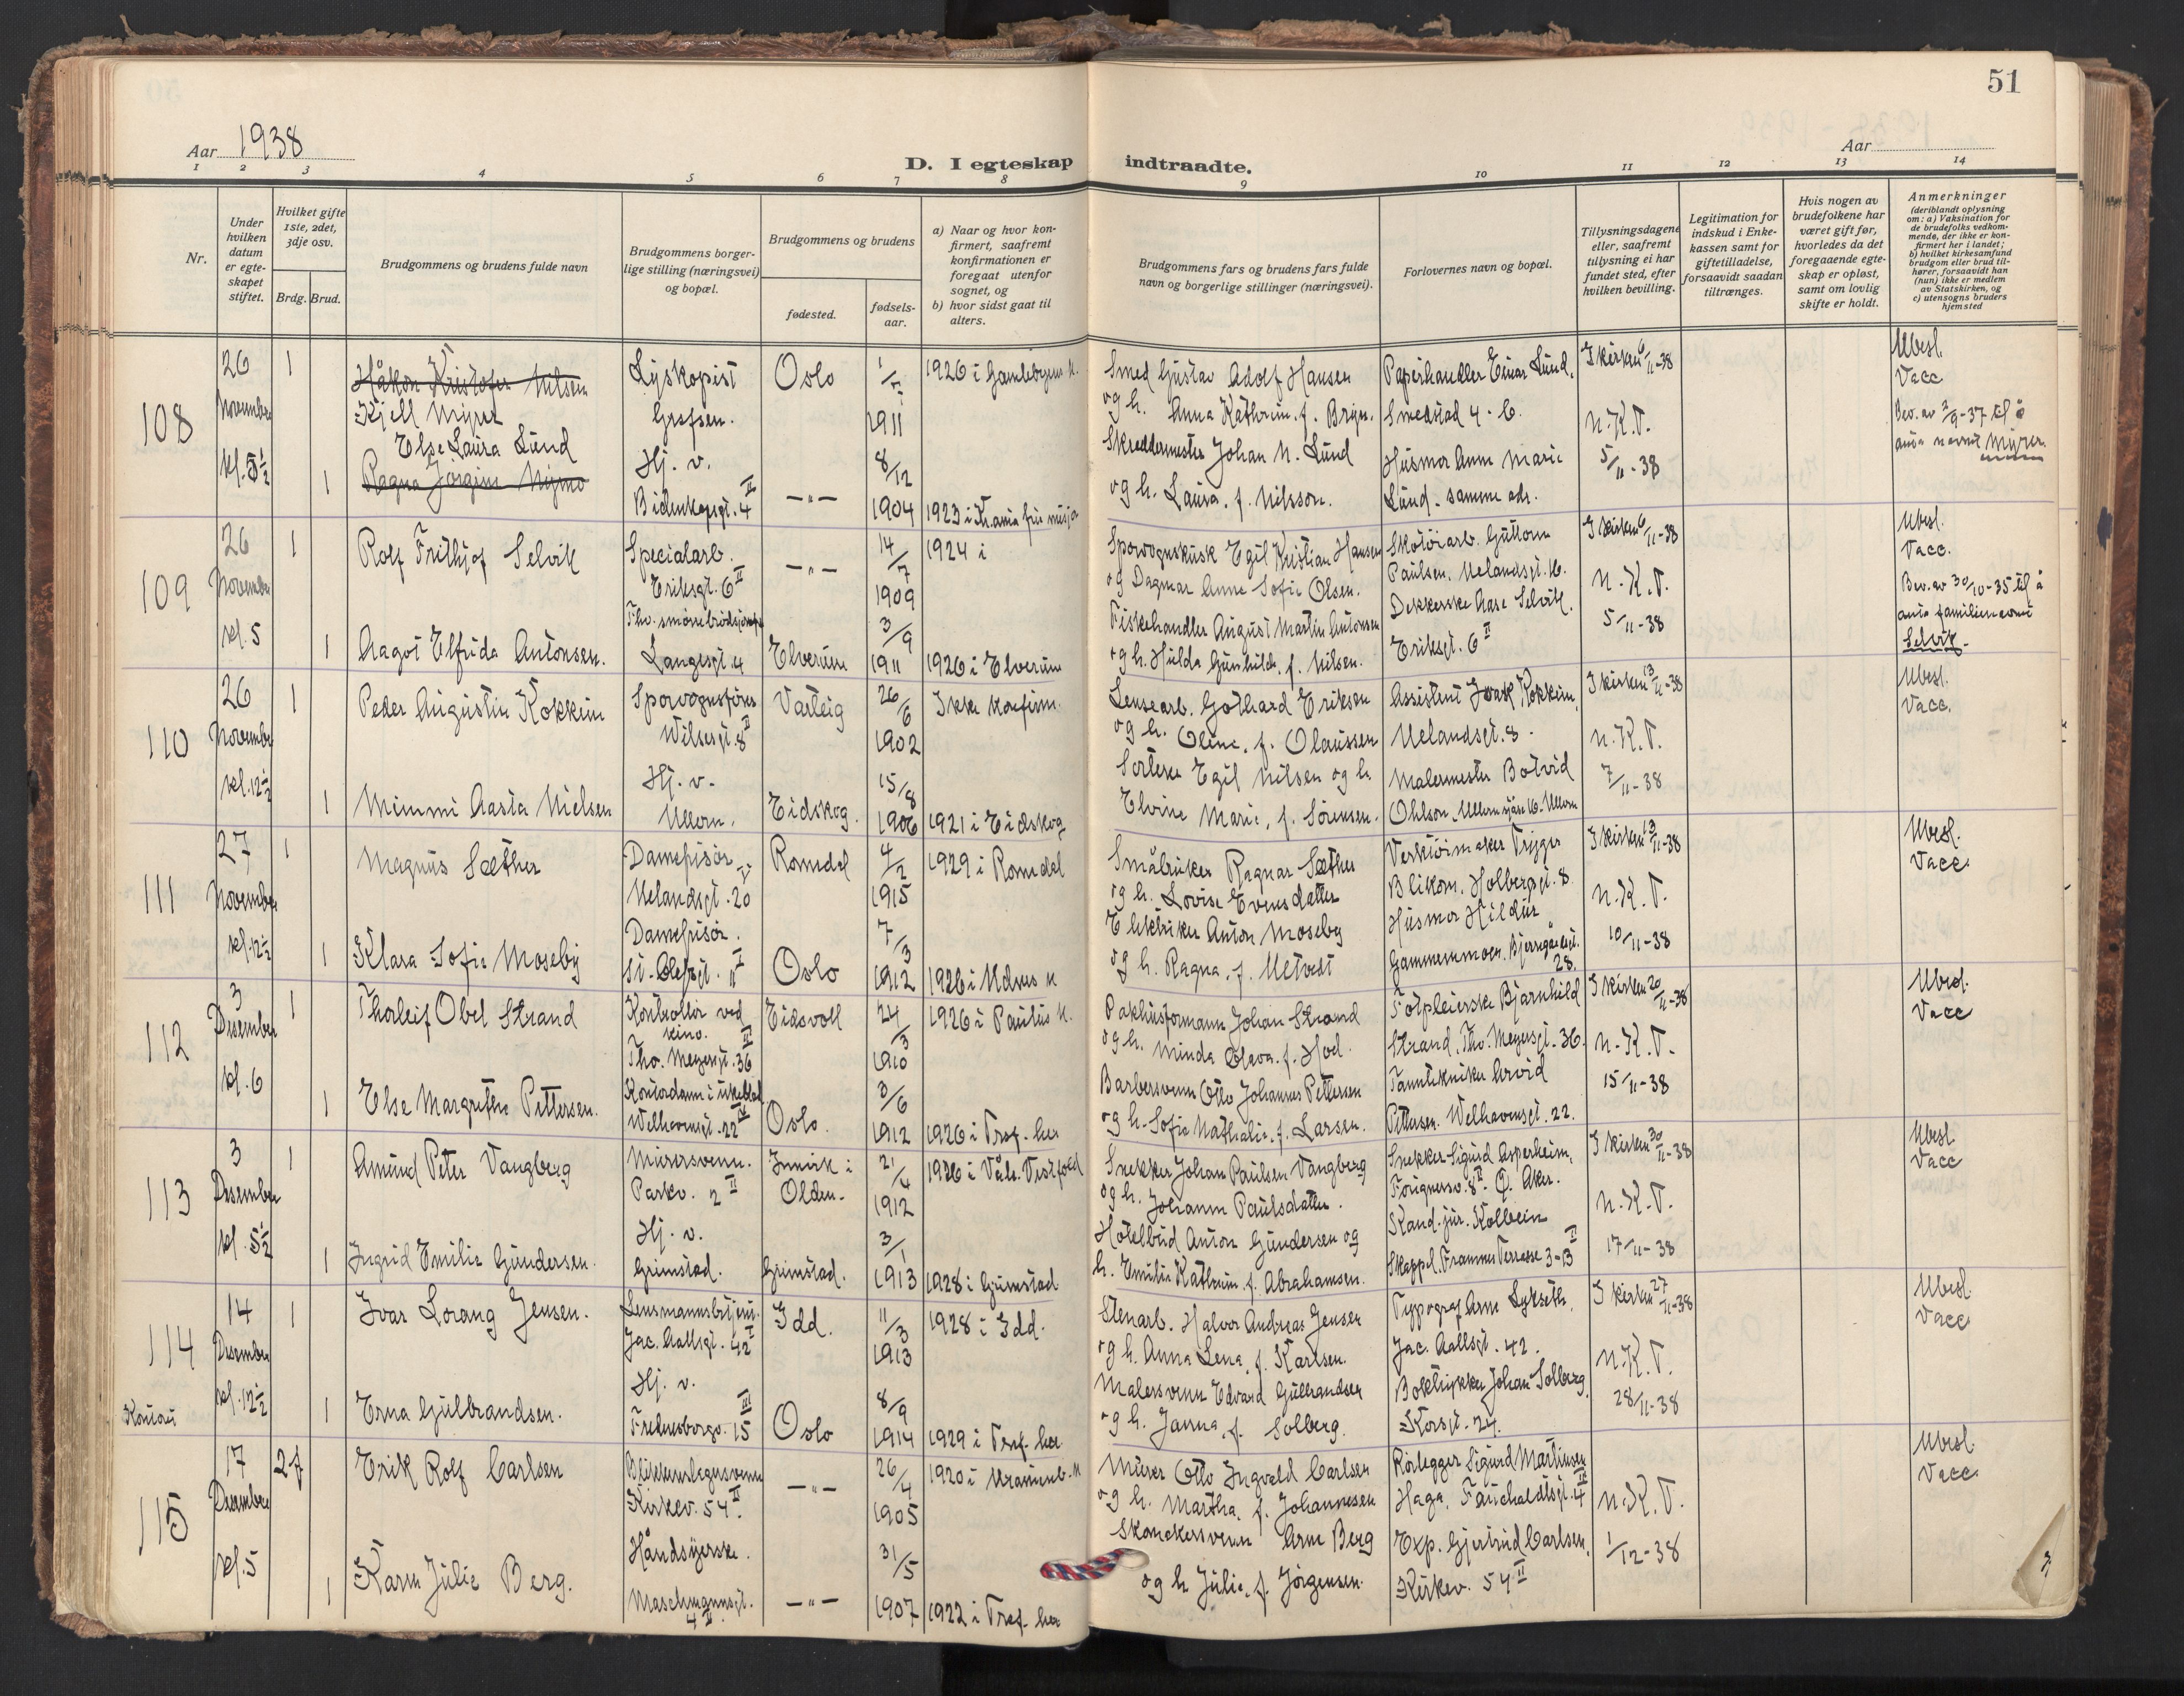 51
Aar 1938
Aar
D. I egteskap indtraadte.
1 2 3 4 5 6 7 8 9 10 11 12 13 14
Nr.
Under hvilken datum er egteskapet stiftet.
Hvilket gifte 1ste, 2det, 3dje osv.
Brdg. Brud.
Brudgommens og brudens fulde navn
Brudgommens borgerlige stilling (næringsvei) og bopæl.
Brudgommens og brudens
fødested.
fødselsaar.
a) Naar og hvor konfirmert, saafremt konfirmationen er foregaat utenfor sognet, og
b) hvor sidst gaat til alters.
Brudgommens fars og brudens fars fulde navn og borgerlige stillinger (næringsvei).
Forlovernes navn og bopæl.
Tillysningsdagene eller, saafremt tillysning ei har fundet sted, efter hvilken bevilling.
Legitimation for indskud i Enkekassen samt for giftetilladelse, forsaavidt saadan tiltrænges.
Hvis nogen av brudefolkene har været gift før, hvorledes da det foregaaende egteskap er opløst, samt om lovlig skifte er holdt.
Anmerkninger
(deriblandt oplysning om: a) Vaksination for de brudefolks vedkommende, der ikke er konfirmert her i landet;
b) hvilket kirkesamfund brudgom eller brud tilhører, forsaavidt han (hun) ikke er medlem av Statskirken, og
c) utensogns bruders hjemsted
108
26 November kl. 5½
1
Håkon Kristofer Nilsen
Kjell Myrer
Lyskopist
Grefsen.
Oslo
1911
1926 i Gamlebyens k.
Smed Gustav Adolf Hansen
og h. Anna Kathrine f. Bryn.
Papirhandler Einar Lund,
Smedstad 4 - C.
I kirken 6/11-38
N.K.T.
5/11-38
Ubesl.
Vacc
Bev. av 2/9-37 til å
anta navnet Myrer.
1
Else Laura Lund
Ragna Jørgine Nymo
Hj. v.
Bidenkapsgt. 4 II
—"—
8/12
1904
1923 i Kr.ania fri misjon
Skreddermester Johan N. Lund
og h. Laura, f. Nilsson.
Husmor Anne Marie
Lund - samme adr.
109
26 November kl. 5
1
Rolf Frithjof Selvik
Specialarb.
Eriksgt. 6 II
—"—
14/7
1909
1924 i
Sporvognskusk Egil Kristian Hansen
og Dagmar Anne Sofie Olsen.
Skotøiarb. Guttorm
Paulsen, Uelandsgt. 16.
I kirken 6/11-38
N.K.T.
5/11-38
Ubesl.
Vacc.
Bev. av 30/10-35 til å
anta familienavnet
Selvik.
1
Aagot Elfrida Antonsen.
Fhv. smørrebrødsjomfru
Langesgt. 4
Elverum
3/9
1911
1926 i Elverum
Fiskehandler August Martin Antonsen
og h. Hulda Gunhilde, f. Nilsen.
Dekkerske Aase Selvik.
Eriksgt. 6 II
110
26 November kl. 12½
1
Peder Augustin Kokkim
Sporvognsfører
Wilsesgt. 8 II
Varteig
26/6
1902
Ikke konfirm.
Lensearb. Gothard Eriksen
og h. Oline, f. Olaussen
Assistent Isak Kokkim,
Uelandsgt. 8.
I kirken 13/11-38
N.K.T.
7/11-38
Ubesl.
Vacc.
1
Mimmi Aasta Nielsen
Hj. v.
Ullern.
Eidskog.
15/8
1906
1921 i Eidskog
Egil Nilsen og h.
Elvine Marie, f. Sørensen.
Malermester Botvid
Ohlson
111
27 November kl. 12½
1
Magnus Sæther
Damefrisør
Uelandsgt. 20
Romsdal
4/2
1915
1929 i Romsdal
Småbruker Ragnar Sæther
og h. Lovise Evensdatter
Verktøimaker Trygve
Blikom, Holbergsgt. 8.
I kirken 13/11-38
N.K.T.
10/11-38
Ubesl.
Vacc.
1
Klara Sofie Moseby
Damefrisør.
St. Olafsgt. 11
Oslo
7/3
1912
1926 i Udvers k
Elektriker Anton Moseby
og h. Ragna, f. Ulvest
Husmor Hildur
Gammersmoen, Bjerregårdsgt.
28.
112
3 Desember kl. 6
1
Thorleif Obel Strand
Kontrollør ved
kino.
Thv. Meyersgt. 36 II
Eidsvoll
24/3
1910
1926 i Paulus k.
Pakhusformann Johan Strand
og h. Minda Olava, f. Hod.
Fotpleierske Bjarnhild
Strand, Thv. Meyersgt. 36.
I kirken 20/11-38
N.K.T.
15/11-38
Ubesl.
Vacc
1
Else Margrethe Pettersen.
Kontordame i ukeblad
Welhavensgt. 22 IV
Oslo.
3/6
1912
1926 i Tref. her
Barbersvenn Otto Johannes Pettersen
og h. Sofie Nathalie, f. Larsen.
Tanntekniker Arvid
Pettersen, Welhavensgt. 22.
113
3 Desember kl. 5½
1
Amund Peter Vangberg
Murersvenn.
Parkv. 2 II
Innvik i
Olden.
21/4
1912
1926 i Våle. Vestfold
Snekker Johan Paulsen Vangberg
og h. Johanne Paulsdatter.
Snekker Sigurd Asperheim,
8 II. Ø. Aker.
I kirken 30/11-38
N.K.T.
17/11-38
Ubesl.
Vacc
1
Ingrid Emilie Gundersen.
Hj. v.
Grimstad.
Grimstad.
3/1
1913
1928 i Grimstad
Hotelbud Anton Gundersen og
h. Emilie Kathrine f. Abrahamsen.
Kand. jur. Kolbein
Skappel, Frammes Terrasse 3-13 II
114
14 Desember kl. 12½
Kontoret
1
Ivar Lorang Jensen.
Lensmannsbetjent.
Jac. Aallsgt. 42 I
Idd.
11/3
1913
1928 i Idd.
Stenarb. Halvor Andreas Jensen
og h. Anna Lena, f. Karlsen.
Typograf Arne Lykseth,
Jac. Aallsgt. 42.
I kirken 27/11-38
N.K.T.
28/11-38
Ubesl.
Vacc
1
Erna Gulbrandsen.
Hj. v.
Fredensborgv. 15 III
Oslo
8/9
1914
1929 i Tref. her
Malersvenn Edvard Gulbrandsen
og h. Janna, f. Solberg.
Boktrykker Johan Solberg,
Korsgt. 24.
115
17 Desember kl. 5
2 f
Erik Rolf Carlsen
Blikkenslagersvenn
Kirkev. 54 II.
—"—
26/4
1905
1920 i Uranienb. k
Murer Otto Ingvald Carlsen
og h. Martha, f. Johannesen
Rørlegger Sigurd Martinsen
Haga, Fauchaldtsgt. 4 II
N.K.T.
1/12-38
Ubesl.
Vacc.
1
Karen Julie Berg.
Håndsyerske.
Maschmannsgt.
4 II
—"—
31/5
1907
1922 i Tref. her
Arne Berg
og h Julie, f. Jørgensen.
Exp. Gjertrud Carlsen,
Kirkev. 54 II